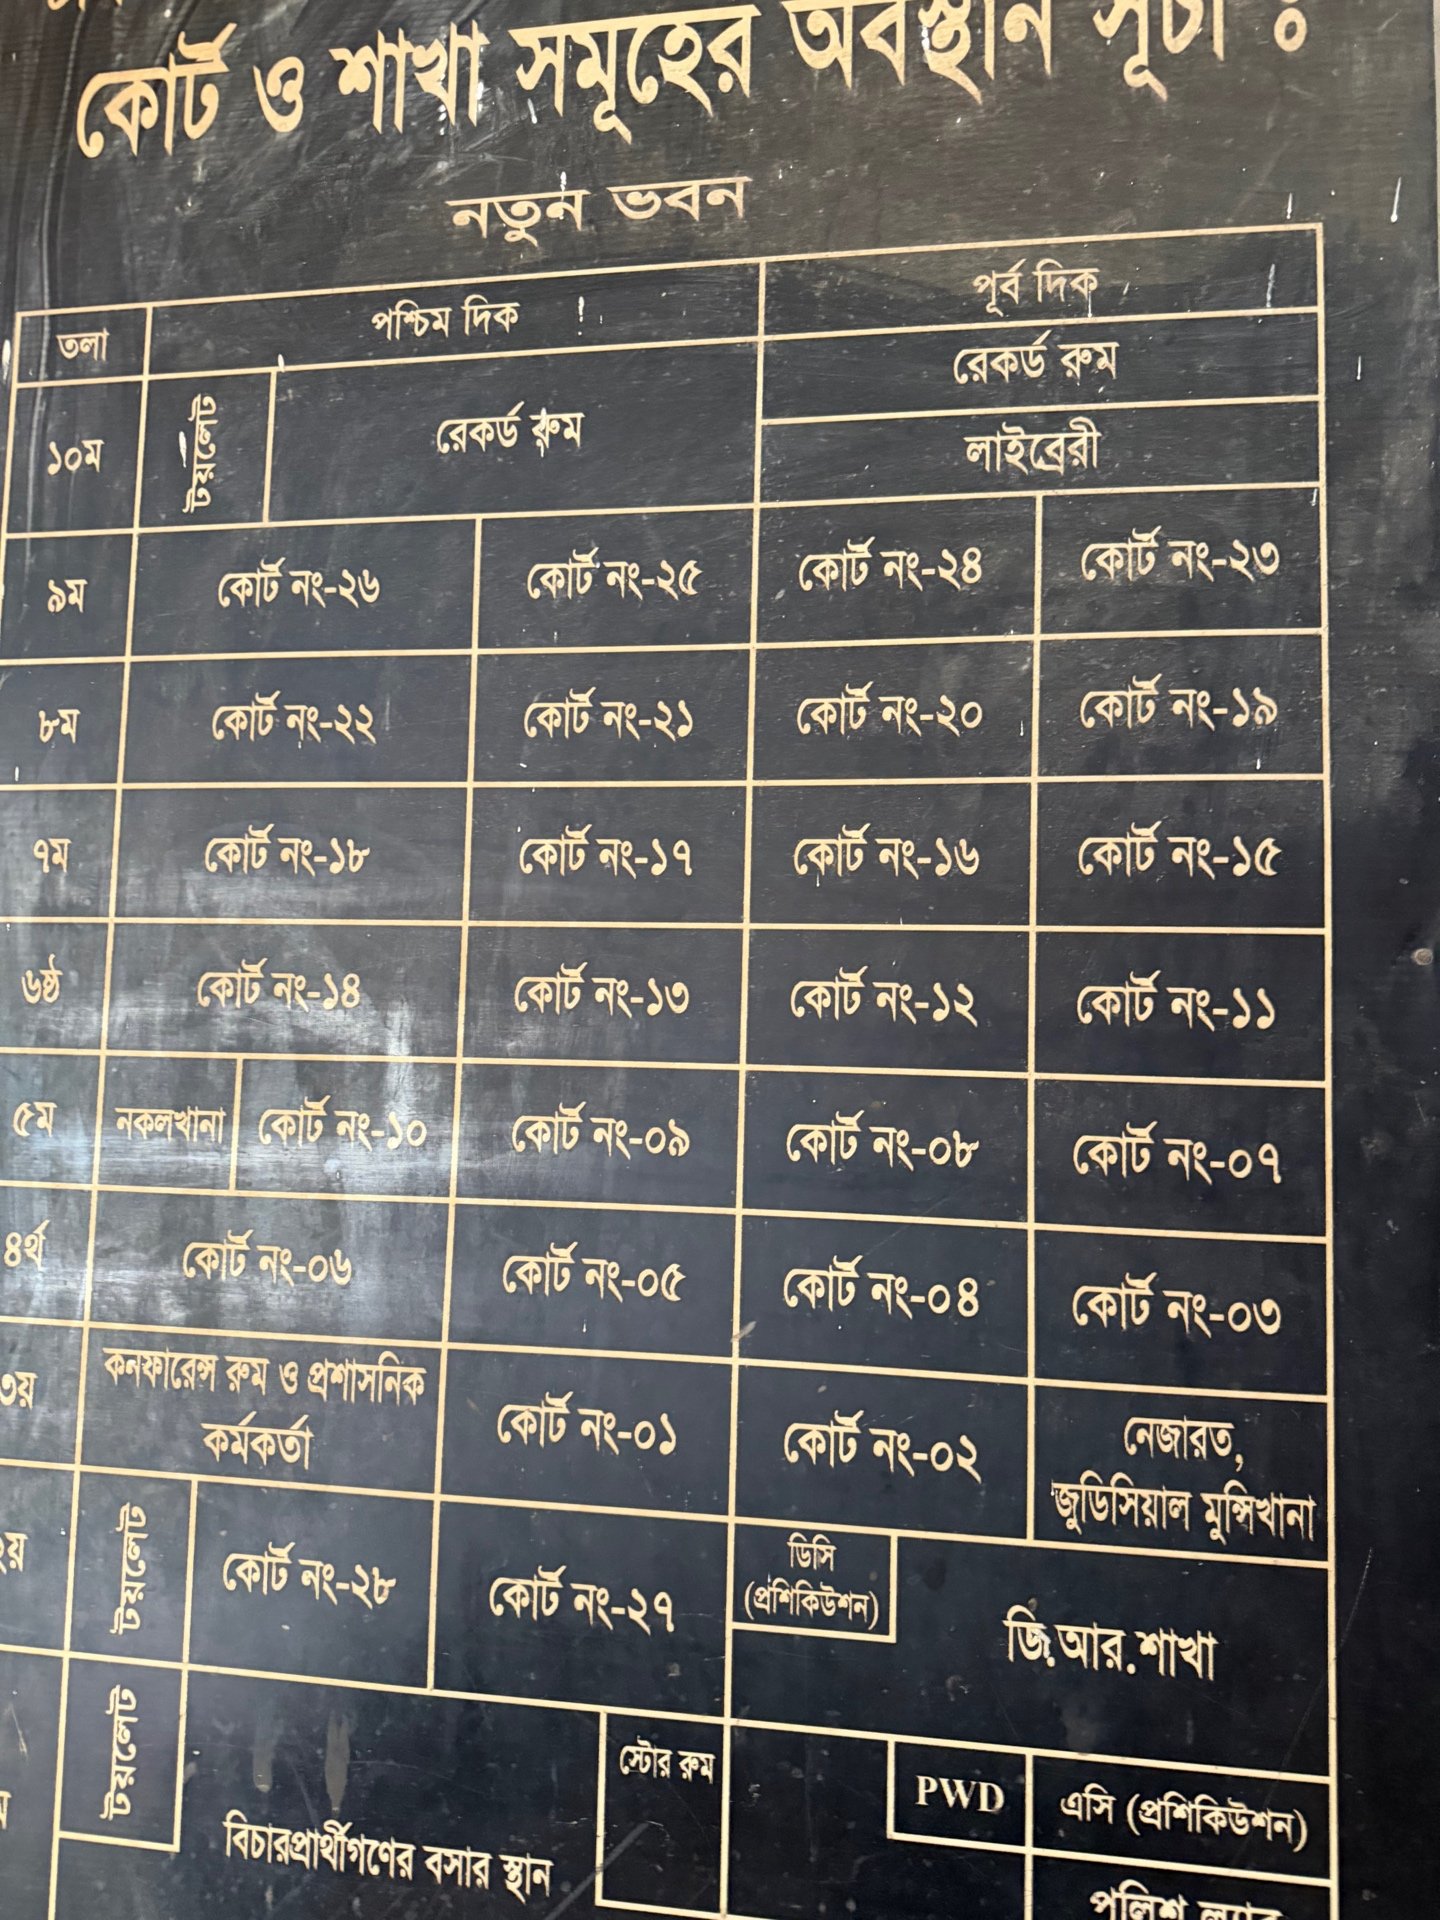 কোর্ট ও শাখা সমূহের অবস্থান সূচী ঃ
নতুন ভবন
তলা পশ্চিম দিক পূর্ব দিক
১০ম টয়লেট রেকর্ড রুম রেকর্ড রুম
লাইব্রেরী
৯ম কোর্ট নং-২৬ কোর্ট নং-২৫ কোর্ট নং-২৪ কোর্ট নং-২৩
৮ম কোর্ট নং-২২ কোর্ট নং-২১ কোর্ট নং-২০ কোর্ট নং-১৯
৭ম কোর্ট নং-১৮ কোর্ট নং-১৭ কোর্ট নং-১৬ কোর্ট নং-১৫
৬ষ্ঠ কোর্ট নং-১৪ কোর্ট নং-১৩ কোর্ট নং-১২ কোর্ট নং-১১
৫ম নকলখানা কোর্ট নং-১০ কোর্ট নং-০৯ কোর্ট নং-০৮ কোর্ট নং-০৭
৪র্থ কোর্ট নং-০৬ কোর্ট নং-০৫ কোর্ট নং-০৪ কোর্ট নং-০৩
৩য় কনফারেন্স রুম ও প্রশাসনিক
কর্মকর্তা
কোর্ট নং-০১ কোর্ট নং-০২ নেজারত,
জুডিসিয়াল মুন্সিখানা
২য় টয়লেট কোর্ট নং-২৮ কোর্ট নং-২৭ ডিসি
(প্রশিকিউশন)
জি.আর.শাখা
টয়লেট বিচারপ্রার্থীগণের বসার স্থান স্টোর রুম PWD এসি (প্রশিকিউশন)
পুলিশ